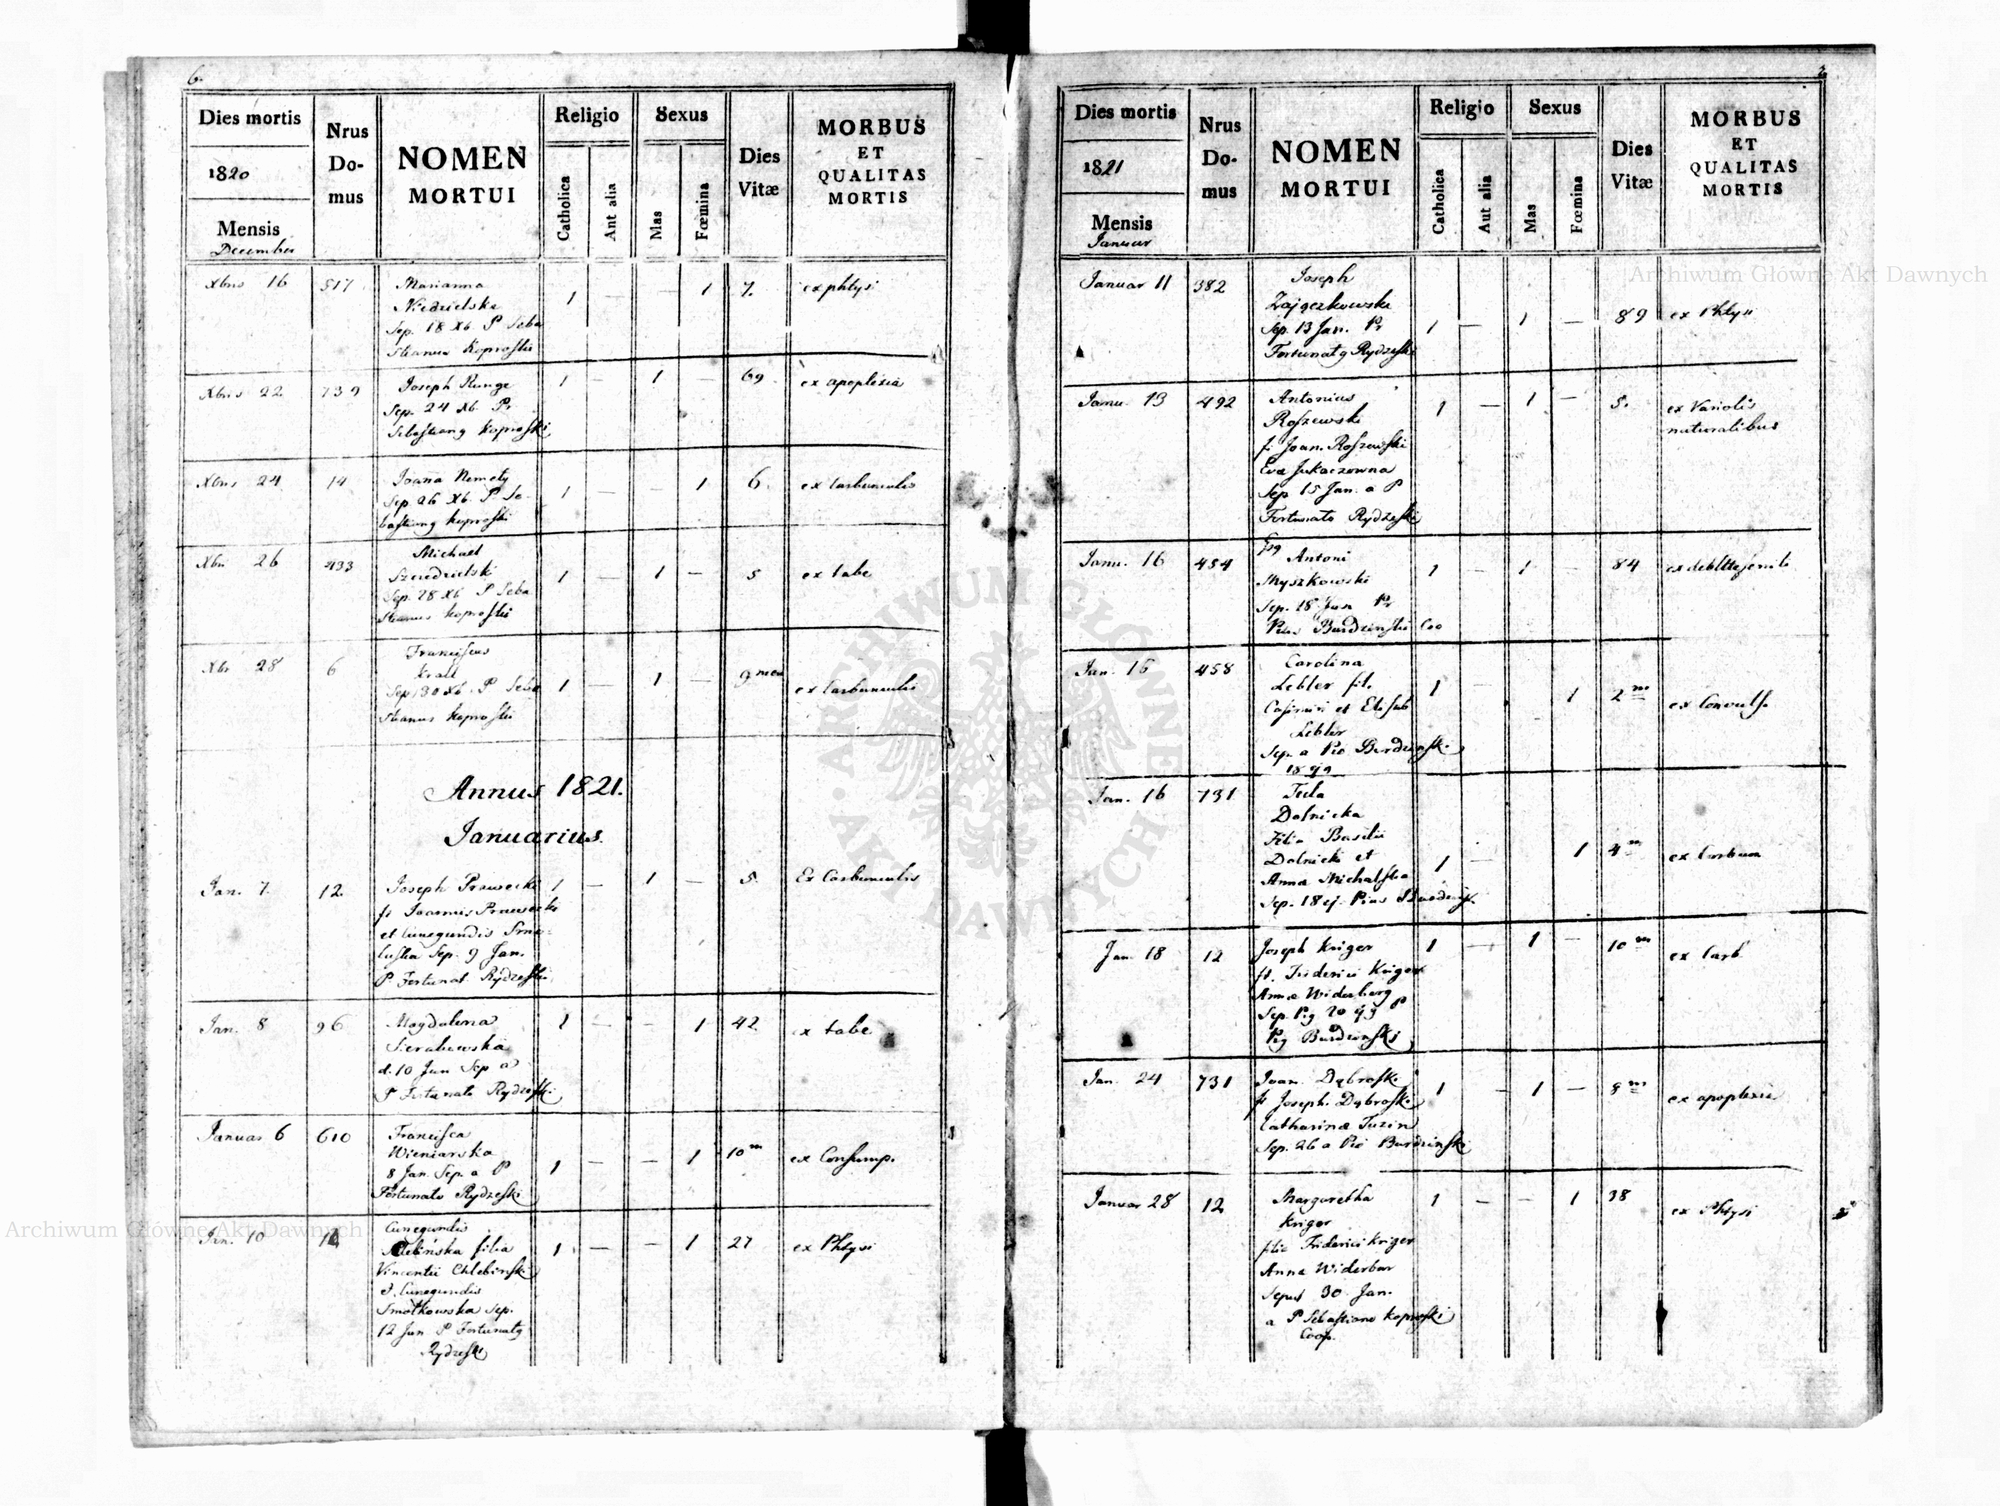 6.
Dies mortis
1820
Mensis
December
Nrus
Do-
mus
NOMEN
MORTUI
Religio
Catholica
Aut alia
Sexus
Mas
Fœmina
Dies
Vitæ
MORBUS
ET
QUALITAS
MORTIS
Xbris 16 517 Marianna 1 — — 1 7. ex phtysi
Niedzielska
Sep. 18 Xb. P Seba
stianus Koproski
Xbris 22 739 Joseph Runge 1 — 1 — 69 ex apoplexia
Sep. 24 Xb. Pr
Sebastiang Koproski
Xbris 24 14 Joana Nemety 1 — — 1 6. ex Carbunculis
Sep. 26 Xb. P. Se-
bastiang Koproski
Xbri 26 433 Michael 1 — 1 — 5 ex tabe
Sep. 28 Xb P Seba
stianus Koproski
Xbr 28 6 Franciscus 1 — 1 — 9 men ex Carbunculis
Krall
Sep. 30 Xb. P Seba
stianus Koproski
Annus 1821.
Januarius.
Jan. 7. 12. Joseph Prawecki 1 — 1 — 5. Ex Carbunculis
fs Joannis Prawecki
et Cunegundis
Sep. 9 Jan.
P Fortunat. Rydzeski
Jan. 8 96 Magdalena 1 — — 1 42 ex tabe
d. 10 Jan Sep a
P Fortunato Rydzeski
Januar 6 610 Francisca 1 — — 1 10 m ex Consump.
Wieniarska
8 Jan. Sep. a P
Fortunato Rydzeski
Jan. 10 Cunegundis 1 — — 1 27 ex Phtysi
filia
Vincentii Chlebinski
Cunegundis
Smolkowska Sep.
12 Jan P Fortunatg
Rydzeski
Dies mortis
1821
Mensis
Januar
Nrus
Do-
mus
NOMEN
MORTUI
Religio
Catholica
Aut alia
Sexus
Mas
Fœmina
Dies
Vitæ
MORBUS
ET
QUALITAS
MORTIS
Januar 11 382 Joseph 1 — 1 — 89 ex Phtysi
Zajączkowski
Sep. 13 Jan. Pr
Fortunatg Rydzeski
Janu. 13 492 Antonius 1 — 1 — 5. ex Variolis
naturalibus
Roszewski
f. Joan. Roszewski
Eva Jukaczowna
Sep. 15 Jan. a P
Fortunato Rydzeski
Janu. 16 454 Antoni 1 — 1 — 84
Myszkowski
Sep. 18 Jan Pr
Pius Burdzinski Coo
Jan. 16 458 Carolina 1 1 2 m ex Convuls.
Lebler fil.
Casimiri et Elisab
Lebler
Sep. a Pio Burdzinski
Jan. 16 731 Tecla 1 — 1 4 m
Dolnicka
filia Basilii
Dolnicki et
Anna Michalska
Sep. 18 ej. Pius Burdzinsk
Jan. 18 12 Joseph Kriger 1 — 1 — 10 m ex Carb.
fs. Friderici Kriger
Anna Widerberg
Burdzinski
Jan. 24 731 Joan. Dąbroski 1 — 1 — 8 m ex apoplexia
fs Joseph. Dąbroski
Catharina Tuzin
Sep. 26 a Pio Burdzinski
Januar 28 12 Margaretha 1 — — 1 38 ex Phtysi
Kriger
filia Friderici Kriger
Anna Widerbar
Sepul 30 Jan.
a P Sebastiano Koproski
Coop.
Archiwum Główne Akt Dawnych
Archiwum Główne Akt Dawnych
ARCHIWUM GŁÓWNE • AKT DAWNYCH •